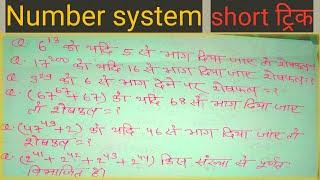 Number system short ट्रिक
Q. 6¹³ को यदि 5 से भाग दिया जाए तो शेषफल = ?
Q. 17²⁰⁰ को यदि 16 से भाग दिया जाए शेषफल = ?
Q. 3²⁹ को 6 से भाग देने पर शेषफल = ?
Q. (67⁶⁷+67) को यदि 68 से भाग दिया जाए
तो शेषफल = ?
Q. (47⁴³+2) को यदि 46 से भाग दिया जाए तो
शेषफल = ?
Q. (2⁴¹+2⁴²+2⁴³+2⁴⁴) किस संख्या से पूर्णतः
विभाजित है।